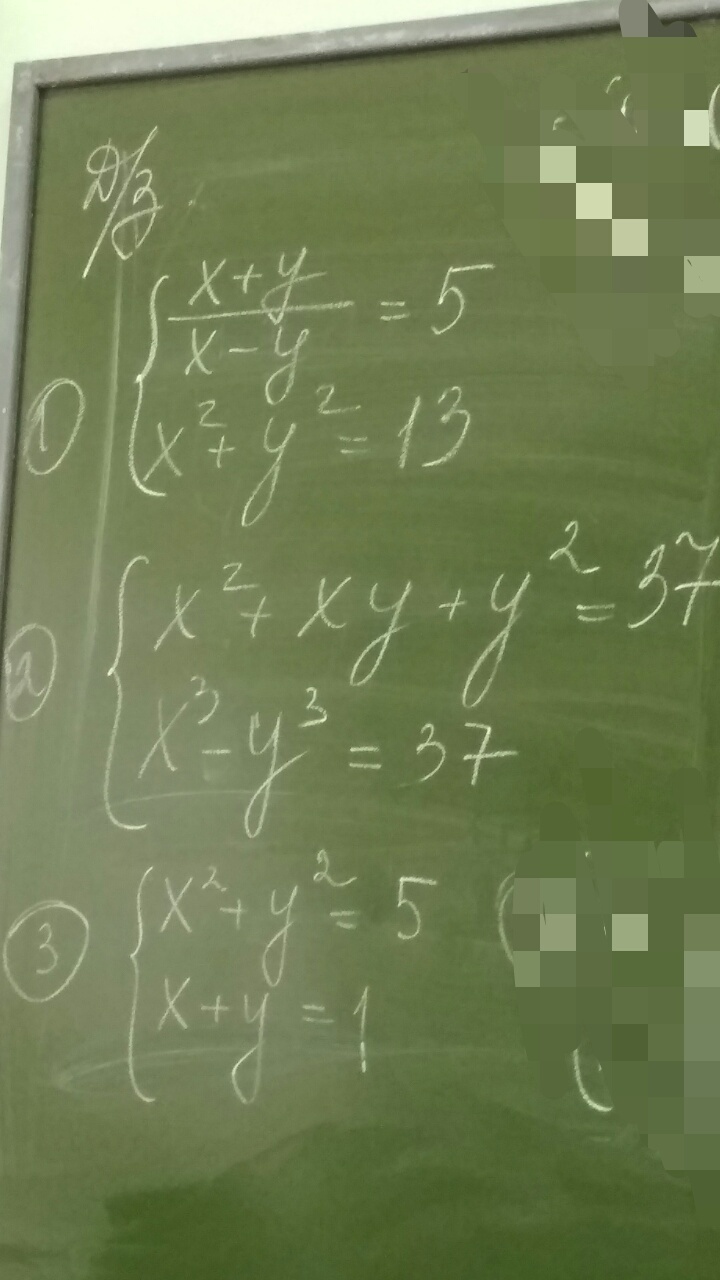 Д/з
① { (x+y)/(x-y) = 5
x² + y² = 13
② { x² + xy + y² = 37
x³ - y³ = 37
③ { x² + y² = 5
x + y = 1